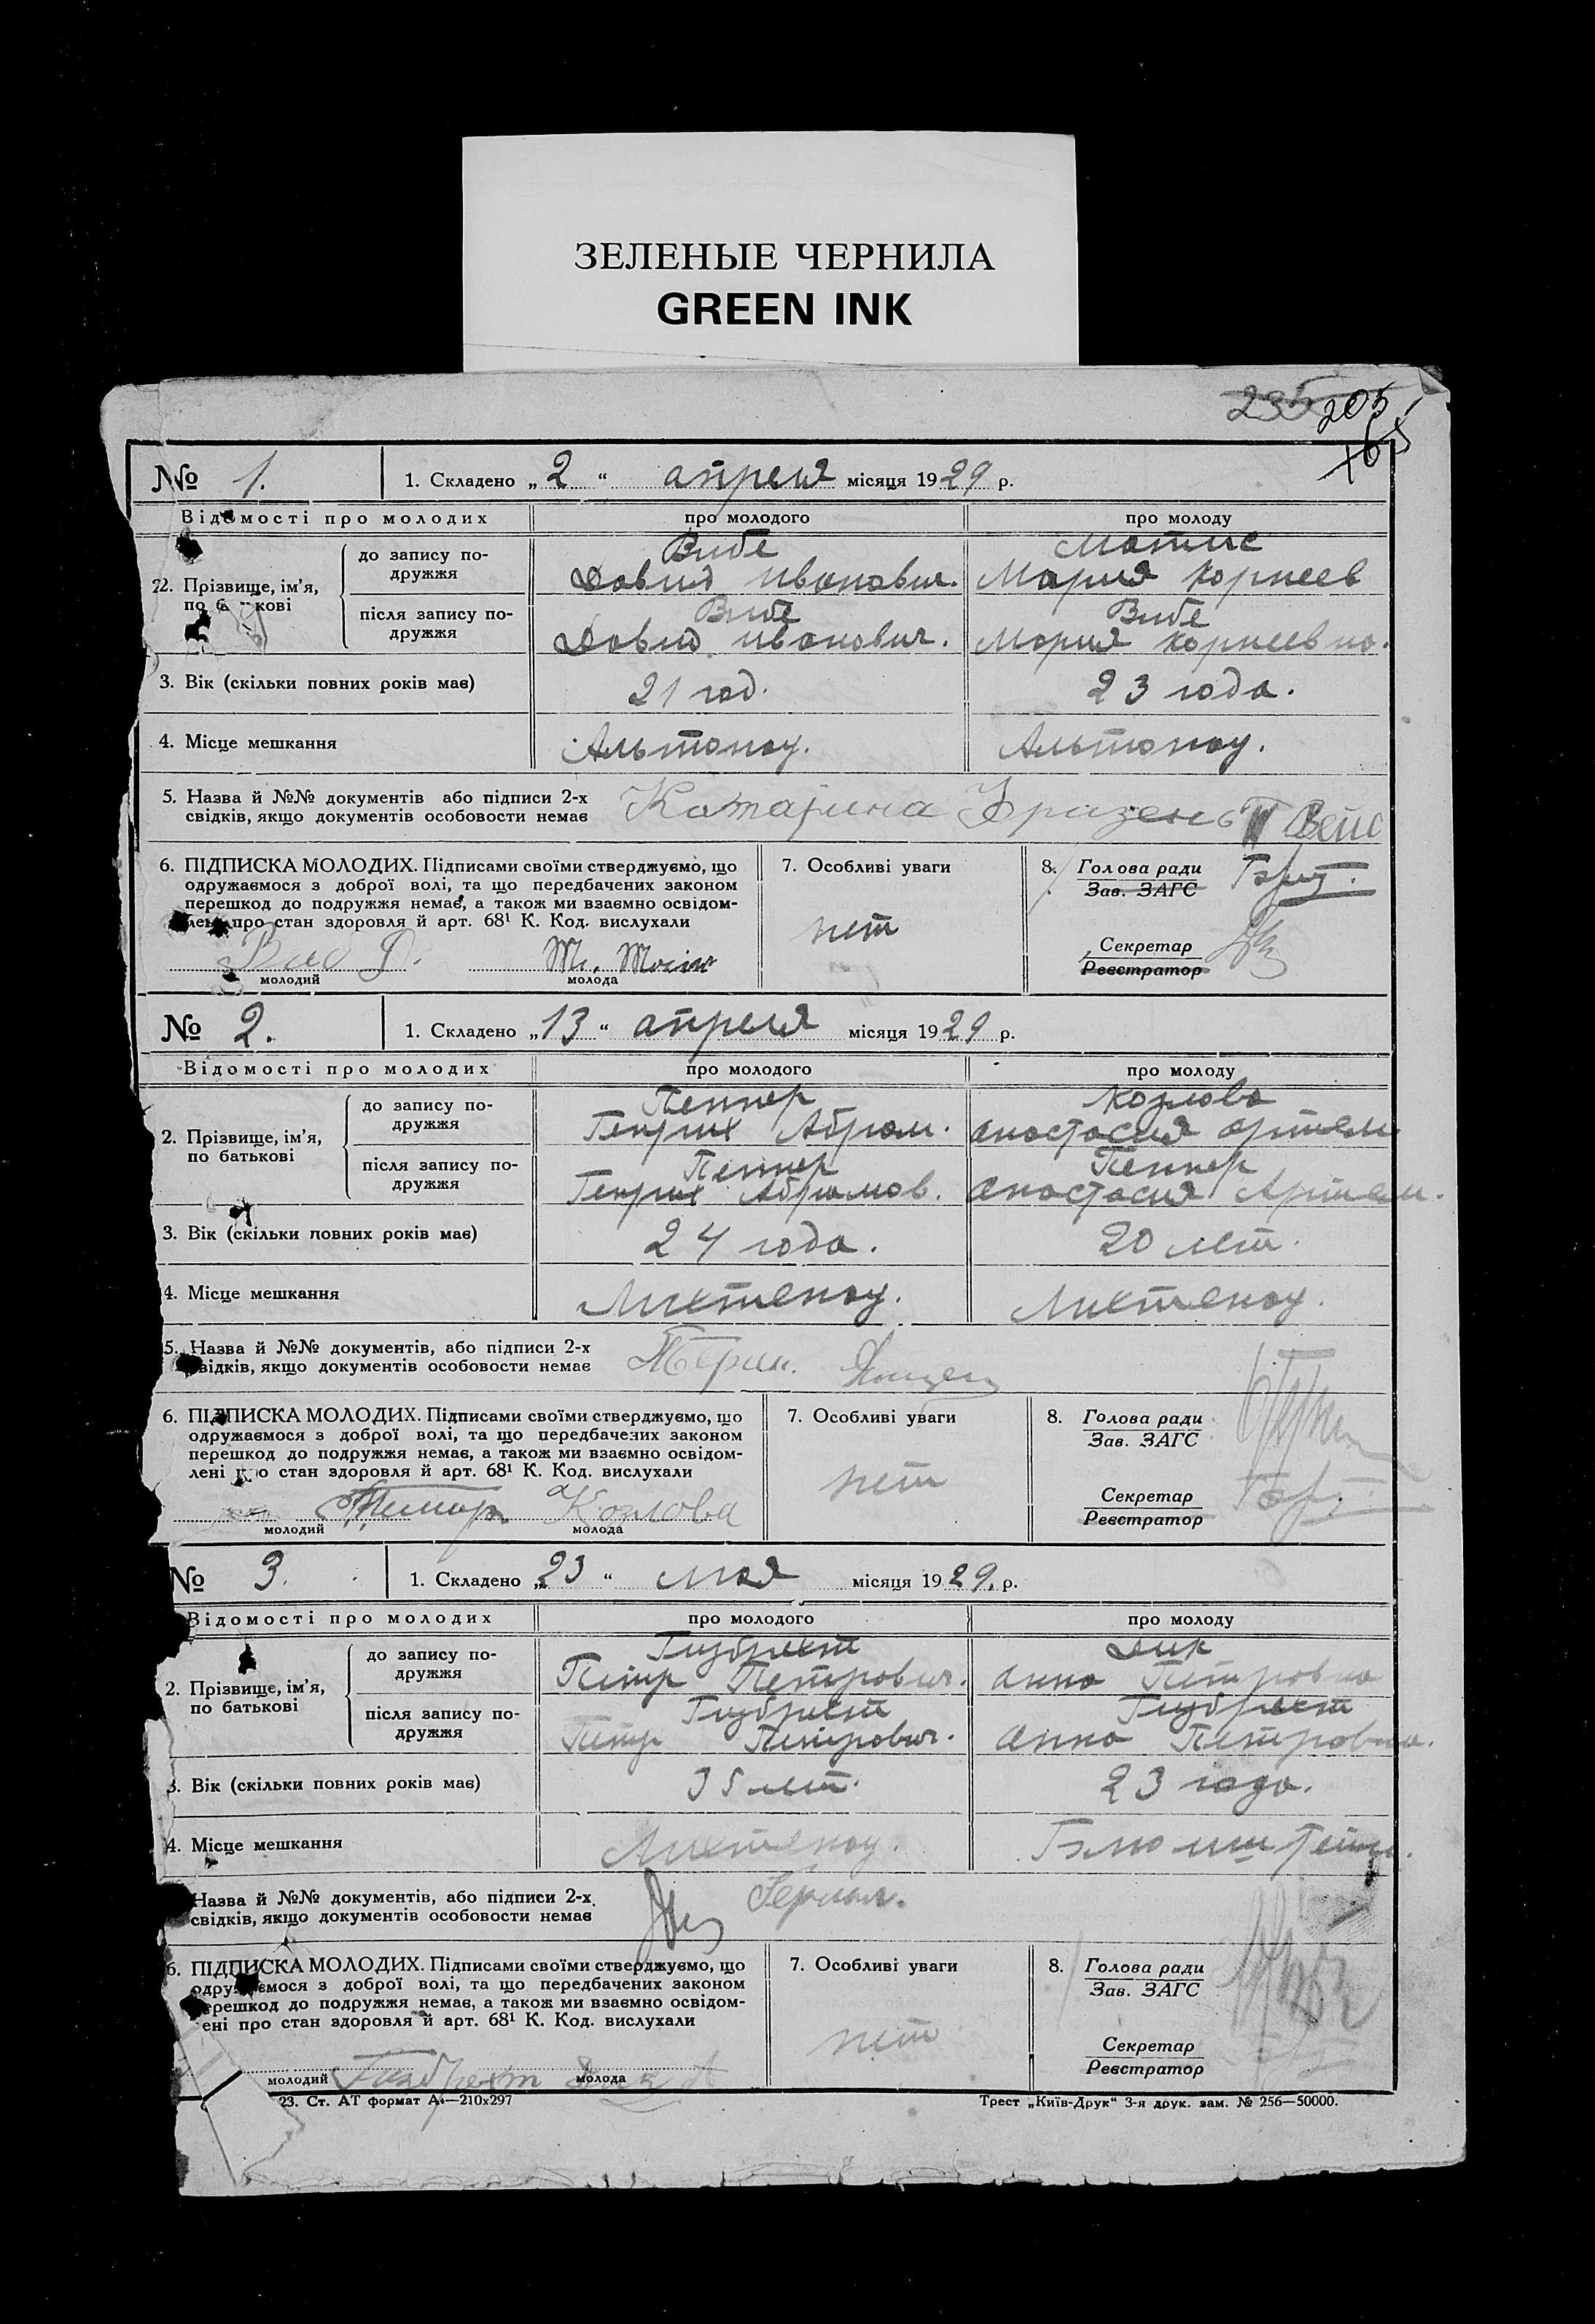 ЗЕЛЕНЫЕ ЧЕРНИЛА
GREEN INK
235 205
165
№ 1. 1. Складено „2“ апреля місяця 1929 р.
Відомості про молодих про молодого про молоду
2. Прізвище, ім’я, по батькові
до запису подружжя
Вибе
Давид Иванович.
Матис
Мария Корнеев
після запису подружжя
Вибе
Давид Иванович.
Вибе
Мария Корнеевна.
3. Вік (скільки повних років має) 21 год. 23 года.
4. Місце мешкання Альтонау. Альтонау.
5. Назва й №№ документів або підписи 2-х
свідків, якщо документів особовости немає
Катарина Фризень
6. ПІДПИСКА МОЛОДИХ. Підписами своїми стверджуємо, що
одружаємося з доброї волі, та що передбачених законом
перешкод до подружжя немає, а також ми взаємно освідом-
лені про стан здоровля й арт. 68¹ К. Код. вислухали
молодий молода
7. Особливі уваги
нет
8. Голова ради
Зав. ЗАГС
Секретар
Реєстратор
№ 2. 1. Складено „13“ апреля місяця 1929 р.
Відомості про молодих про молодого про молоду
2. Прізвище, ім’я,
по батькові
до запису по-
дружжя
Пеннер
Генрих Абрам.
Козлова
Анастасия Артем
після запису по-
дружжя
Пеннер
Генрих Абрамов.
Пеннер
Анастасия Артем.
3. Вік (скільки повних років має) 24 года. 20 лет.
4. Місце мешкання Лихтенау. Лихтенау.
5. Назва й №№ документів, або підписи 2-х
свідків, якщо документів особовости немає
6. ПІДПИСКА МОЛОДИХ. Підписами своїми стверджуємо, що
одружаємося з доброї волі, та що передбачених законом
перешкод до подружжя немає, а також ми взаємно освідом-
лені про стан здоровля й арт. 68¹ К. Код. вислухали
Козлова
молодий молода
7. Особливі уваги
нет
8. Голова ради
Зав. ЗАГС
Секретар
Реєстратор
№ 3. 1. Складено „23“ мая місяця 1929. р.
Відомості про молодих про молодого про молоду
2. Прізвище, ім’я,
по батькові
до запису по-
дружжя
Гизбрехт
Петр Петрович.
Дик
Анна Петровна
після запису по-
дружжя
Гизбрехт
Петр Петрович.
Гизбрехт
Анна Петровна.
3. Вік (скільки повних років має) 35 лет. 23 года.
4. Місце мешкання Лихтенау.
Назва й №№ документів, або підписи 2-х
свідків, якщо документів особовости немає
6. ПІДПИСКА МОЛОДИХ. Підписами своїми стверджуємо, що
одружаємося з доброї волі, та що передбачених законом
перешкод до подружжя немає, а також ми взаємно освідом-
лені про стан здоровля й арт. 68¹ К. Код. вислухали
молодий молода
7. Особливі уваги
нет
8. Голова ради
Зав. ЗАГС
Секретар
Реєстратор
23. Ст. АТ формат А₄—210х297 Трест „Київ-Друк“ 3-я друк. зам. № 256—50000.